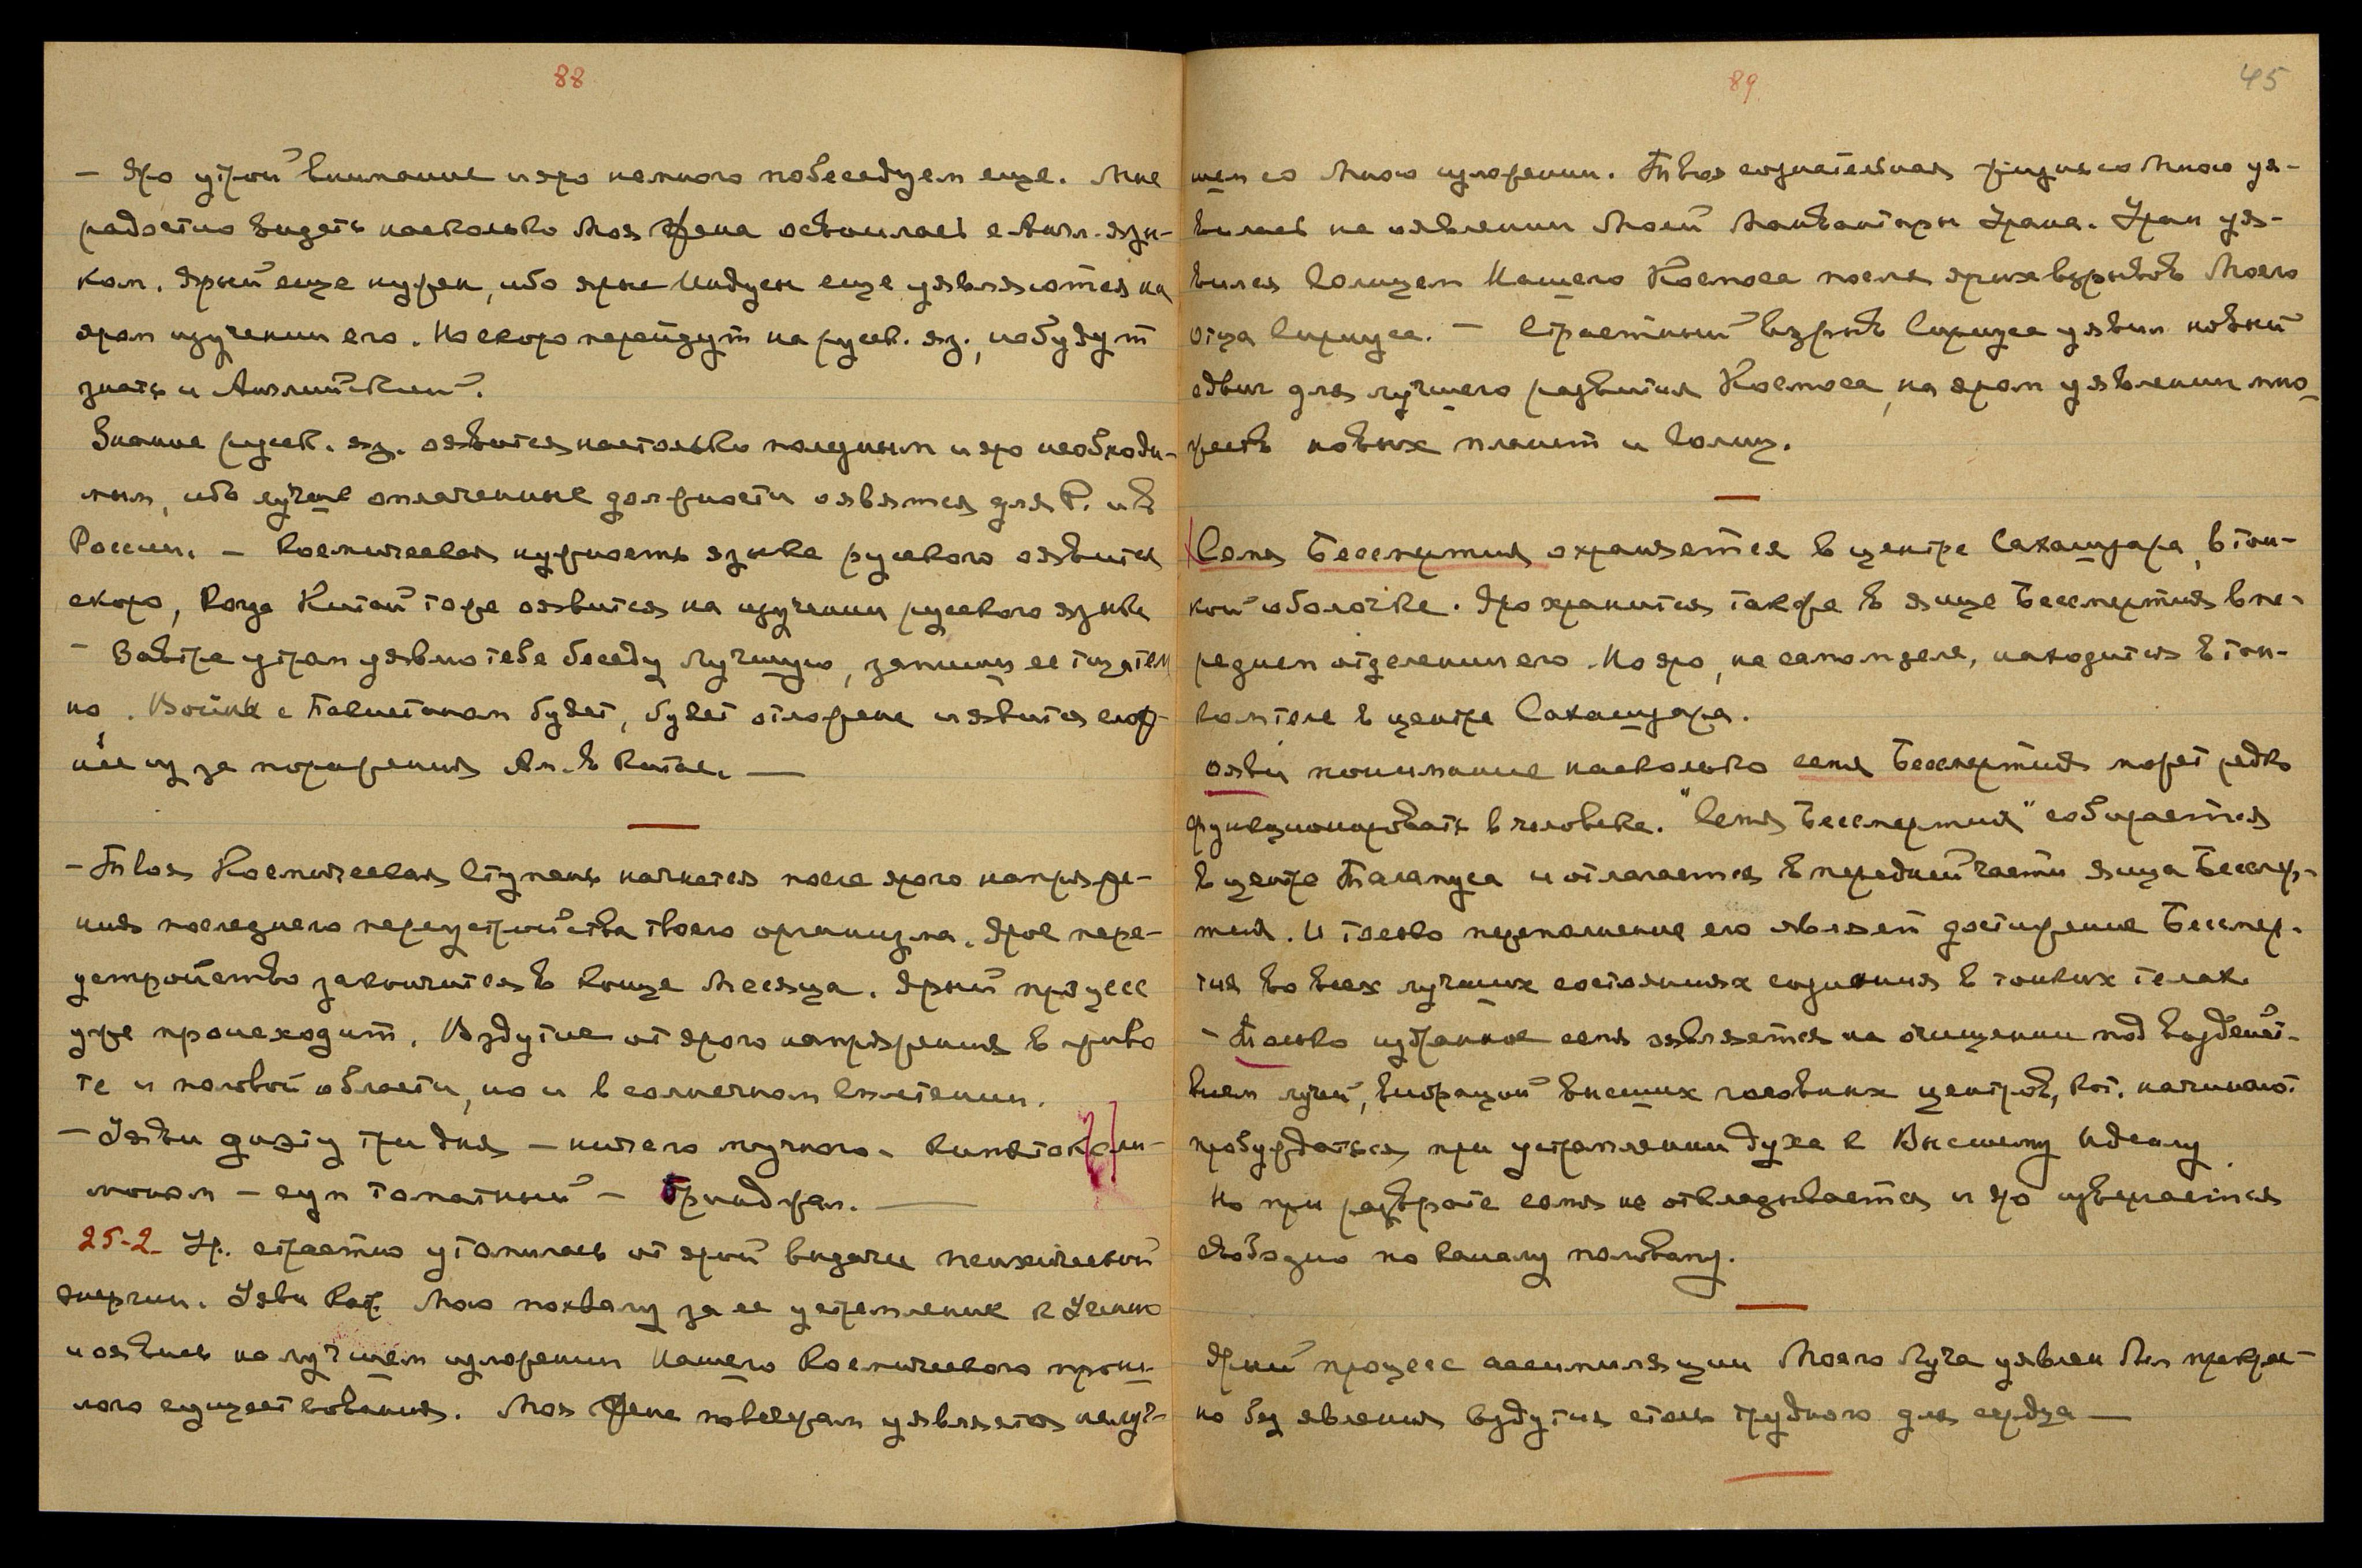 88
— Яро утрой внимание и яро немного побеседуем еще. Мне
радостно видеть насколько Моя Жена освоилась с Англ. язы-
ком. Ярый еще нужен, ибо ярые Индусы еще уявляются на
яром изучении его. Но скоро перейдут на русск. яз., но будут
знать и Английский.
Знание русск. яз. оявится настолько полезным и яро необходи-
мым, ибо лучше оплаченные должности оявятся для Р. и в
России. — Космическая нужность языка русского оявится
скоро, когда Китай тоже оявится на изучении русского языка
— Завтра утром уявлю тебе беседу Лучшую, запиши ее тщатель
но. Война с Пакистаном будет, будет отложена и явится
из за поражения Ам. в Китае. —
— Твоя Космическая Ступень начнется после ярого напряже-
ния последнего переустройства твоего организма. Ярое пере-
устройство закончится в конце Месяца. Ярый процесс
уже происходит. Вздутие от ярого напряжения в живо
те и половой области, но и в солнечном сплетении.
— Уяви диэту три дня — ничего мучного.
— суп томатный —
25-2 Ур. страстно утомилась от ярой выдачи психической
энергии. Уяви Мою похвалу за ее устремление к
и оявись на лучшем изложении Нашего Космического прош-
лого существования. Моя Жена по вечерам уявляется на луч-
89
45
шем со Мною изложении. Твоя сознательная жизнь со Мною уя-
вилась на оявлении Моей Манвантары Урана. Уран уя-
вился Солнцем Нашего Космоса после ярых взрывов Моего
отца Сириуса. — Страстный взрыв Сириуса уявил новый
сдвиг для лучшего развития Космоса, на яром уявлении мно
жеств новых планет и Солнц.
Семя Бессмертия охраняется в центре Сахашрара, в тон-
кой оболочке. Яро хранится также в яйце Бессмертия в пе-
реднем отделении его. Но яро, на самом деле, находится в тон-
ком теле в центре Сахашрара.
ояви понимание насколько семя Бессмертия может редко
функционировать в человеке. "Семя Бессмертия" собирается
в центре Таламуса и отлагается в передней части яйца Бессмер-
тия. И только переполнение его являет достижение Бессмер-
тия во всех лучших состояниях сознания в тонких телах.
— Только избранное семя оявляется на очищении под воздейст-
вием лучей, вибраций высших головных центров, кот. начинают
пробуждаться при устремлении духа к Высшему Идеалу.
Но при разврате семя не откладывается и яро извергается
свободно по каналу половому.
Ярый процесс ассимиляции Моего Луча уявлен был прекрас-
но без явления вздутия столь трудного для сердца —